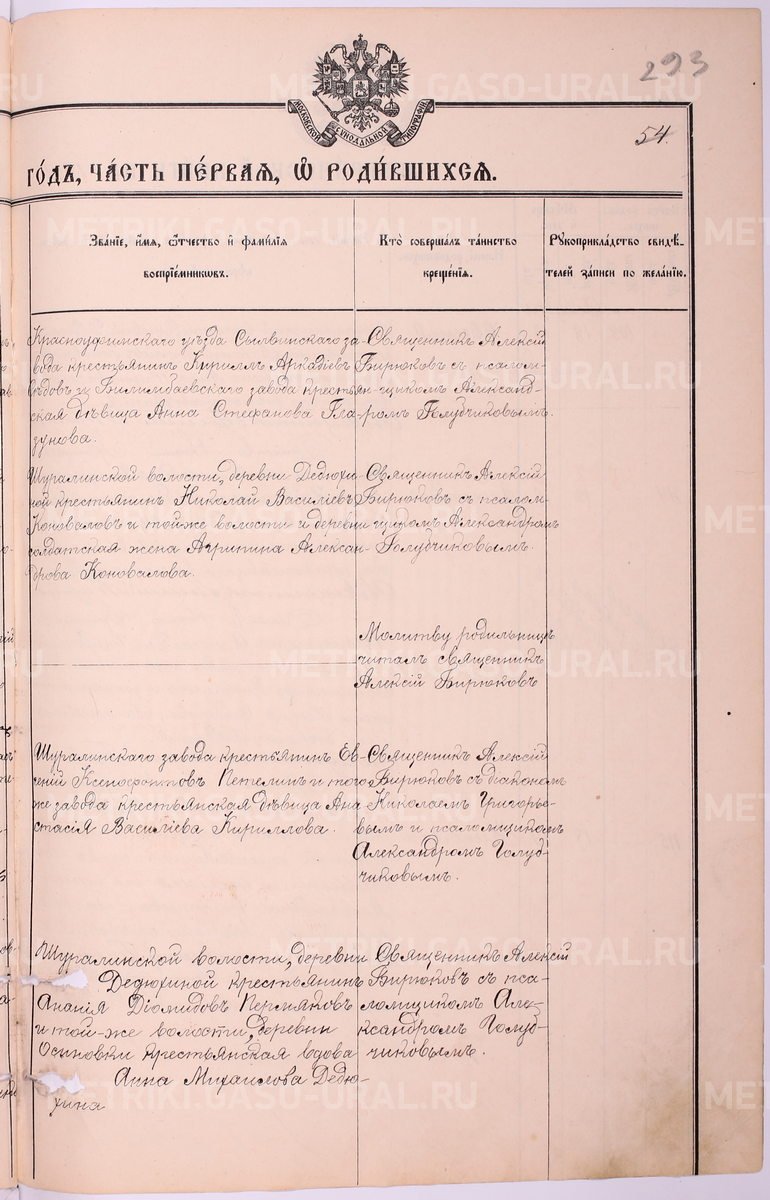 293
МОСКОВСКОЙ СѴНОДАЛЬНОЙ ТИПОГРАФІИ
54.
го́дъ, ча́сть пе́рвая, ѡ҆ роди́вшихся.
Зва́нїе, и҆́мя, ѻ҆́тчество и҆ фами́лїя
воспрїе́мниковъ.
Кто̀ соверша́лъ та́инство
креще́нїя.
Рꙋкоприкла́дство свидѣ́-
телей за́писи по жела́нїю.
Красноуфимскаго уѣзда Сылвинскаго за-
вода крестьянинъ Кириллъ Аркадіевъ
Билимбаевскаго завода крестьян-
ская дѣвица Анна Стефанова Гла-
зунова.
Священникъ Алексій
Бирюковъ съ псалом-
щикомъ Александ-
ромъ Голубчиковымъ.
Шуралинской волости, деревни Дедюхи-
ной крестьянинъ Николай Василіевъ
Коноваловъ и той же волости и деревни
солдатская жена Агрипина Алексан-
дрова Коновалова.
Священникъ Алексій
Бирюковъ съ псалом-
щикомъ Александромъ
Голубчиковымъ.
Молитву родильницѣ
читалъ священникъ
Алексій Бирюковъ
Шуралинскаго завода крестьянинъ Ев-
сеній Ксенофонтовъ Петелинъ и того-
же завода крестьянская дѣвица Ана-
стасія Василіева Кириллова.
Священникъ Алексій
Бирюковъ съ діакономъ
Николаемъ Григорье-
вымъ и псаломщикомъ
Александромъ Голуб-
чиковымъ.
Шуралинской волости, деревни
Дедюхиной крестьянинъ
Ананія Діомидовъ Пермяковъ
и той-же волости, деревни
Осиновки крестьянская вдова
Анна Михаилова Дедю-
хина
Священникъ Алексій
Бирюковъ съ пса-
ломщикомъ Але-
ксандромъ Голуб-
чиковымъ.
METRIKI.GASO-URAL.RU